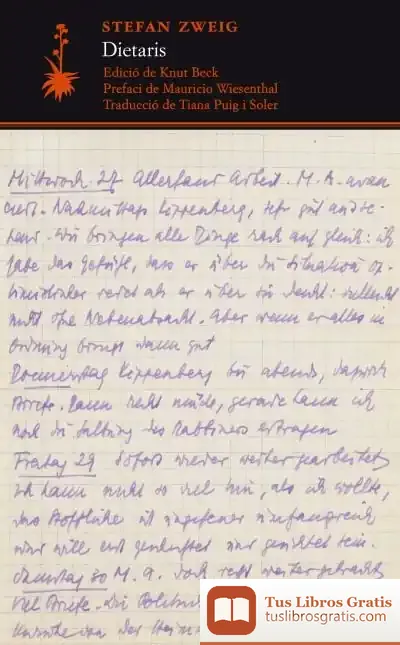 STEFAN ZWEIG
Dietaris
Edició de Knut Beck
Prefaci de Mauricio Wiesenthal
Traducció de Tiana Puig i Soler
Mittwoch 27 Allerhand Arbeit. M. A. avan
ciert. Nachmittags Kippenberg, sehr gut und
Wir bringen alle Dinge rasch auf gleich: ich
habe das Gefühl, dass er über die Situation op-
timistischer redet als er über sie denkt: vielleicht
nicht ohne Nebenabsicht. Aber wenn er alles in
Ordnung bringt dann gut
Donnerstag Kippenberg bis abends, dazwisch
Briefe. Dann recht müde, gerade kann ich
noch die des Rabbiners ertragen
Freitag 29 Sofort wieder weiter gearbeitet
ich kann nicht so viel tun, als ich wollte,
das ist ungeheuer umfangreich
und will erst und gesichtet sein.
Samstag 30 M. A. doch recht weitergebracht
Viel Briefe. Die
von der
Tus Libros Gratis
tuslibrosgratis.com